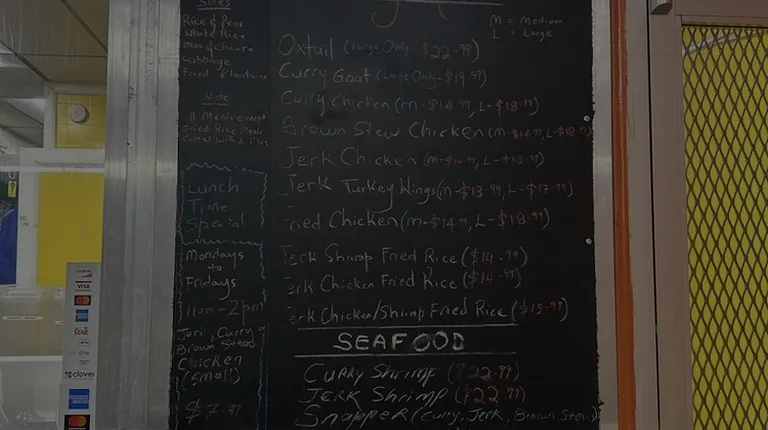 Sides
Rice & Peas
White Rice
Mac & Cheese
Cabbage
Fried Plantains
Note
All Meals except
Fried Rice Meals
Lunch
Time
Special
Mondays
to
Fridays
11am - 2pm
Jerk, Curry &
Brown Stew
Chicken
(Small)
$7.99
M = Medium
L = Large
Oxtail (Large Only - $22.99)
Curry Goat (Large Only - $19.99)
Curry Chicken (M - $14.99, L - $18.99)
Brown Stew Chicken (M - $14.99, L - $18.99)
Jerk Chicken (M - $14.99, L - $18.99)
Jerk Turkey Wings (M - $13.99, L - $17.99)
Fried Chicken (M - $14.99, L - $18.99)
Jerk Shrimp Fried Rice ($14.99)
Jerk Chicken Fried Rice ($14.99)
Jerk Chicken/Shrimp Fried Rice ($15.99)
SEAFOOD
Curry Shrimp ($22.99)
Jerk Shrimp ($22.99)
Snapper (Curry, Jerk, Brown Stew)
VISA
clover